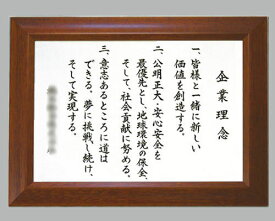 企業理念
一、皆様と一緒に新しい
価値を創造する。
二、公明正大・安心安全を
最優先とし、地球環境の保全、
そして、社会貢献に努める。
三、意志あるところに道は
できる。夢に挑戦し続け、
そして実現する。